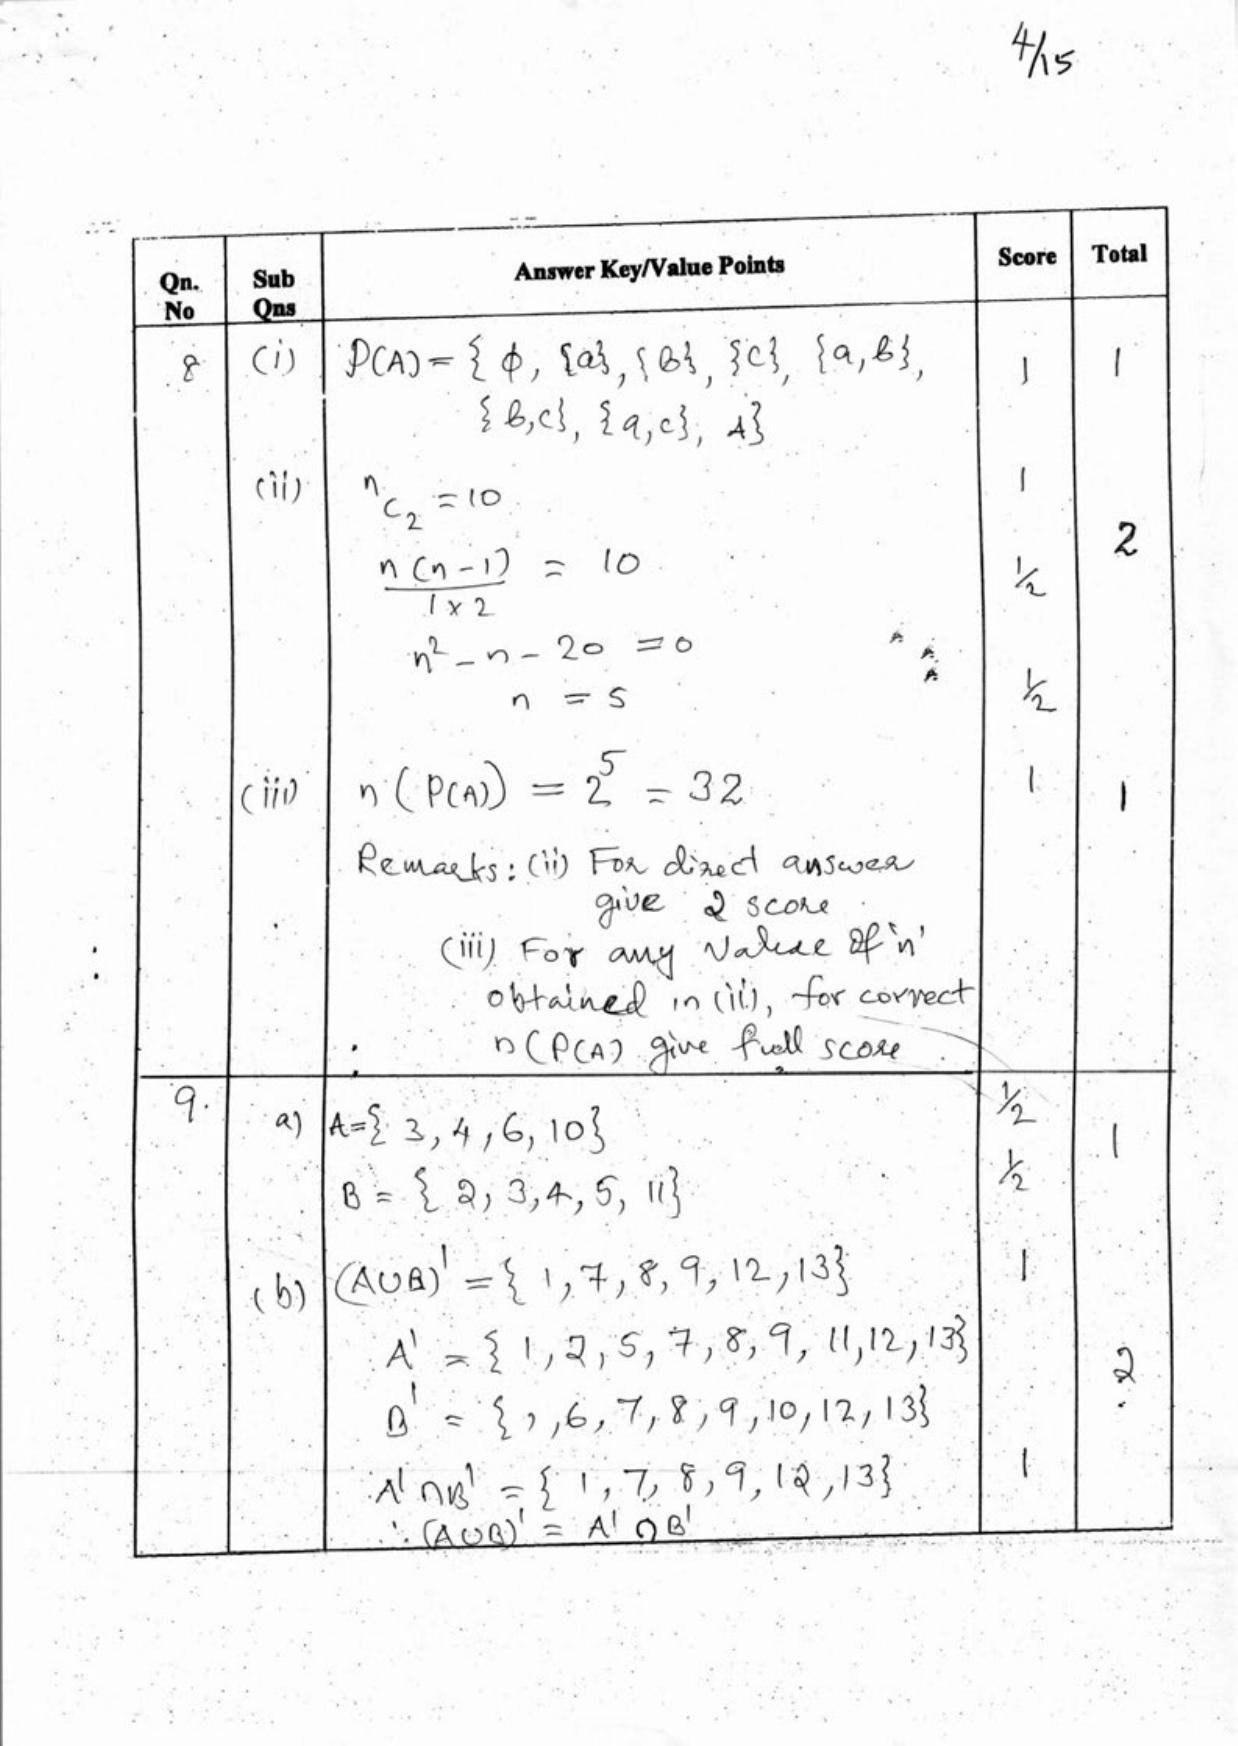 4/15
Qn. No Sub Qns Answer Key/Value Points Score Total
8 (i) P(A) = { ϕ, {a}, {b}, {c}, {a,b}, 1 1
{b,c}, {a,c}, A}
(ii) ⁿC₂ = 10 1
2
n(n-1)/1×2 = 10 ½
n² - n - 20 = 0
n = 5 ½
(iii) n(P(A)) = 2⁵ = 32 1 1
Remarks: (ii) For direct answer
give 2 score
(iii) For any value of 'n'
obtained in (ii), for correct
n(P(A) give full score
9. a) A={ 3, 4, 6, 10} ½ 1
B = { 2, 3, 4, 5, 11} ½
(b) (A∪B)' = { 1, 7, 8, 9, 12, 13} 1
A' = { 1, 2, 5, 7, 8, 9, 11, 12, 13} 2
B' = { , 6, 7, 8, 9, 10, 12, 13}
A' ∩ B' = { 1, 7, 8, 9, 12, 13} 1
∴ (A∪B)' = A' ∩ B'